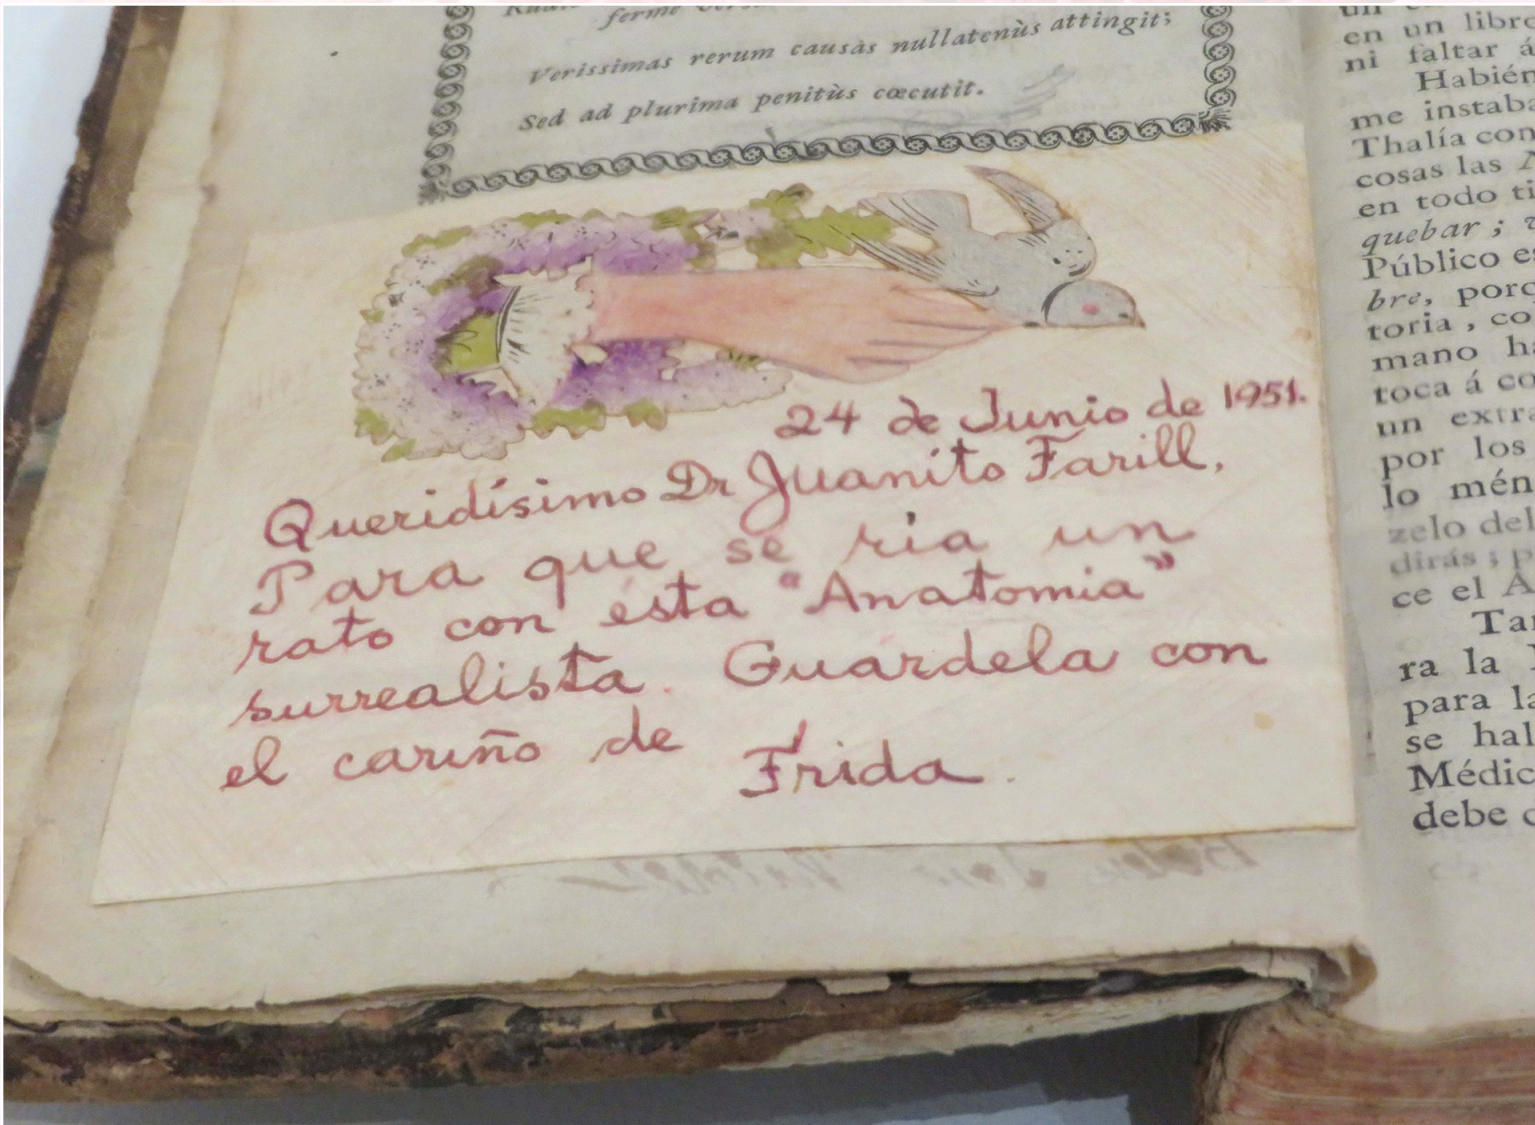 ferme
Verissimas rerum causàs nullatenùs attingit;
Sed ad plurima penitùs cœcutit.
24 de Junio de 1951.
Queridísimo Dr Juanito Farill,
Para que se ria un
rato con ésta "Anatomia"
surrealista. Guardela con
el cariño de
Frida.
en un libro
ni faltar á
Habién
me instaba
Thalía con
cosas las A
en todo ti
quebar; v
Público es
bre, porq
toria, co
mano ha
toca á co
un extra
por los
lo mén
zelo del
dirás; p
ce el A
Tam
ra la
para la
se hal
Médic
debe